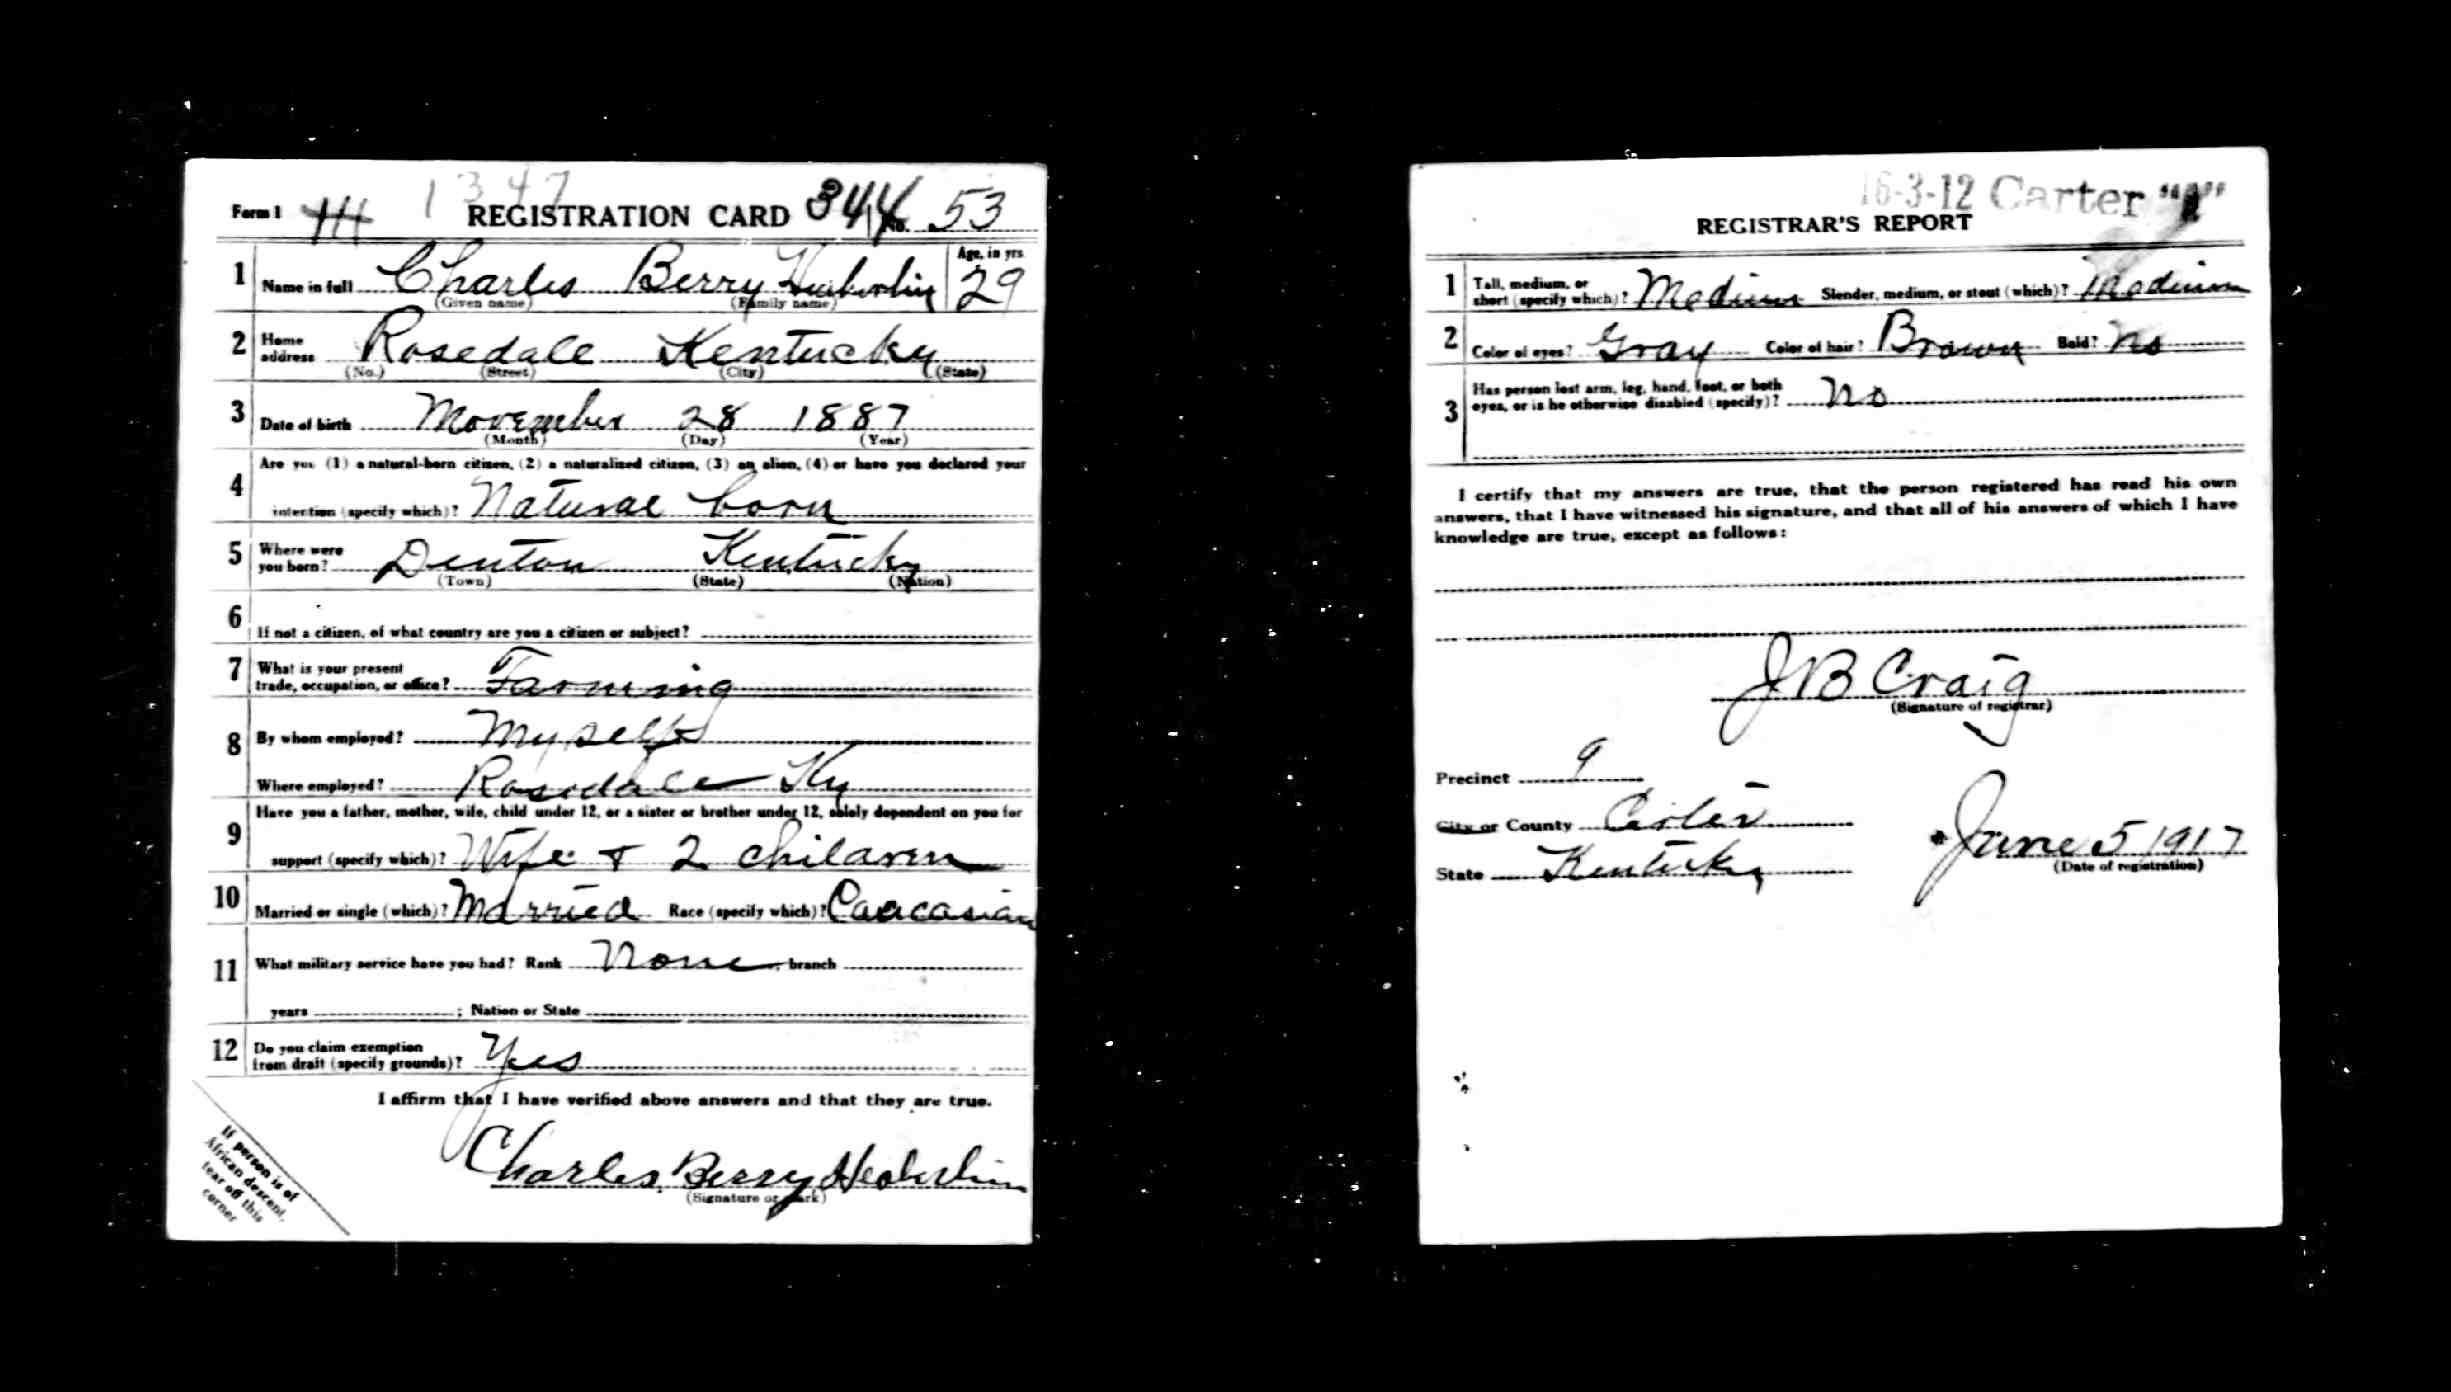 1347
Form 1 REGISTRATION CARD 344 No. 53
1 Name in full Charles Berry Age, in yrs. 29
(Given name) (Family name)
2 Home address Rosedale Kentucky
(No.) (Street) (City) (State)
3 Date of birth November 28 1887
(Month) (Day) (Year)
4 Are you (1) a natural-born citizen, (2) a naturalized citizen, (3) an alien, (4) or have you declared your
intention (specify which)? Natural born
5 Where were you born? Denton Kentucky
(Town) (State) (Nation)
6 If not a citizen, of what country are you a citizen or subject?
7 What is your present
trade, occupation, or office? Farming
8 By whom employed? Myself
Where employed? Rosedale Ky
9 Have you a father, mother, wife, child under 12, or a sister or brother under 12, solely dependent on you for
support (specify which)? Wife + 2 children
10 Married or single (which)? Married Race (specify which)? Caucasian
11 What military service have you had? Rank None, branch
years ; Nation or State
12 Do you claim exemption
from draft (specify grounds)? Yes
I affirm that I have verified above answers and that they are true.
Charles Berry Heaberlin
(Signature or mark)
If person is of
African descent,
tear off this
corner
16-3-12 Carter "A"
REGISTRAR'S REPORT
1 Tall, medium, or
short (specify which)? Medium Slender, medium, or stout (which)? Medium
2 Color of eyes? Gray Color of hair? Brown Bald? No
3 Has person lost arm, leg, hand, foot, or both
eyes, or is he otherwise disabled (specify)? No
I certify that my answers are true, that the person registered has read his own
answers, that I have witnessed his signature, and that all of his answers of which I have
knowledge are true, except as follows:
J B Craig
(Signature of registrar)
Precinct 9
City or County Carter
State Kentucky
June 5 1917
(Date of registration)